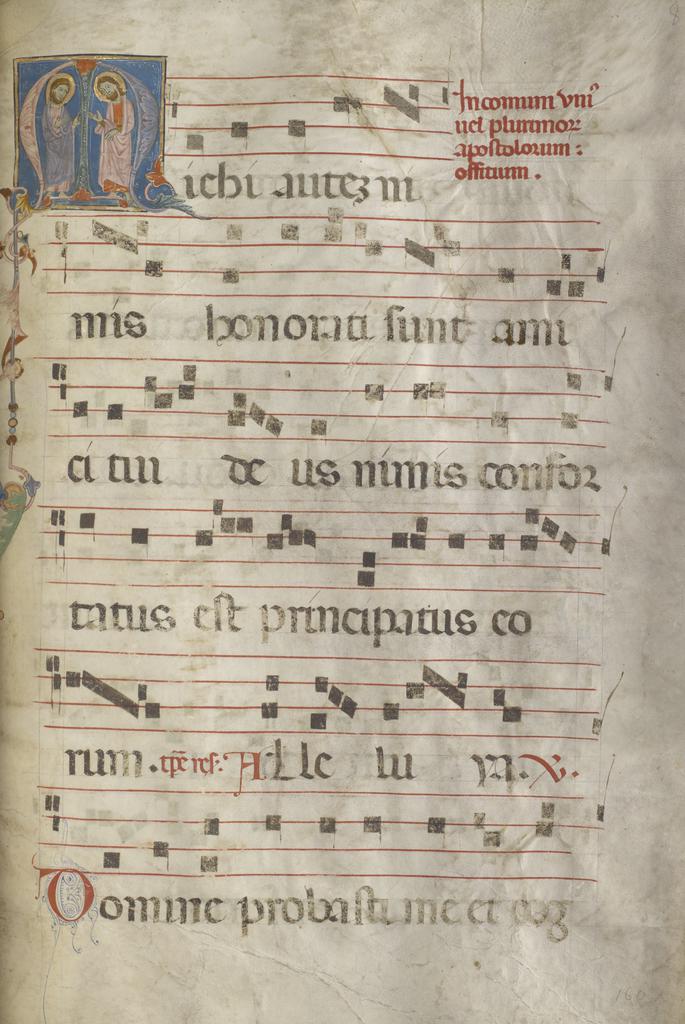 In comum vniꝰ
uel plurimoꝝ
apostolorum :
offitium .
Michi autez ni
mis honorati sunt ami
ci tui de us nimis confor
tatus est principatus eo
rum . tp̄e res : Alle lu ya . V .
Domine probasti me et cog
160